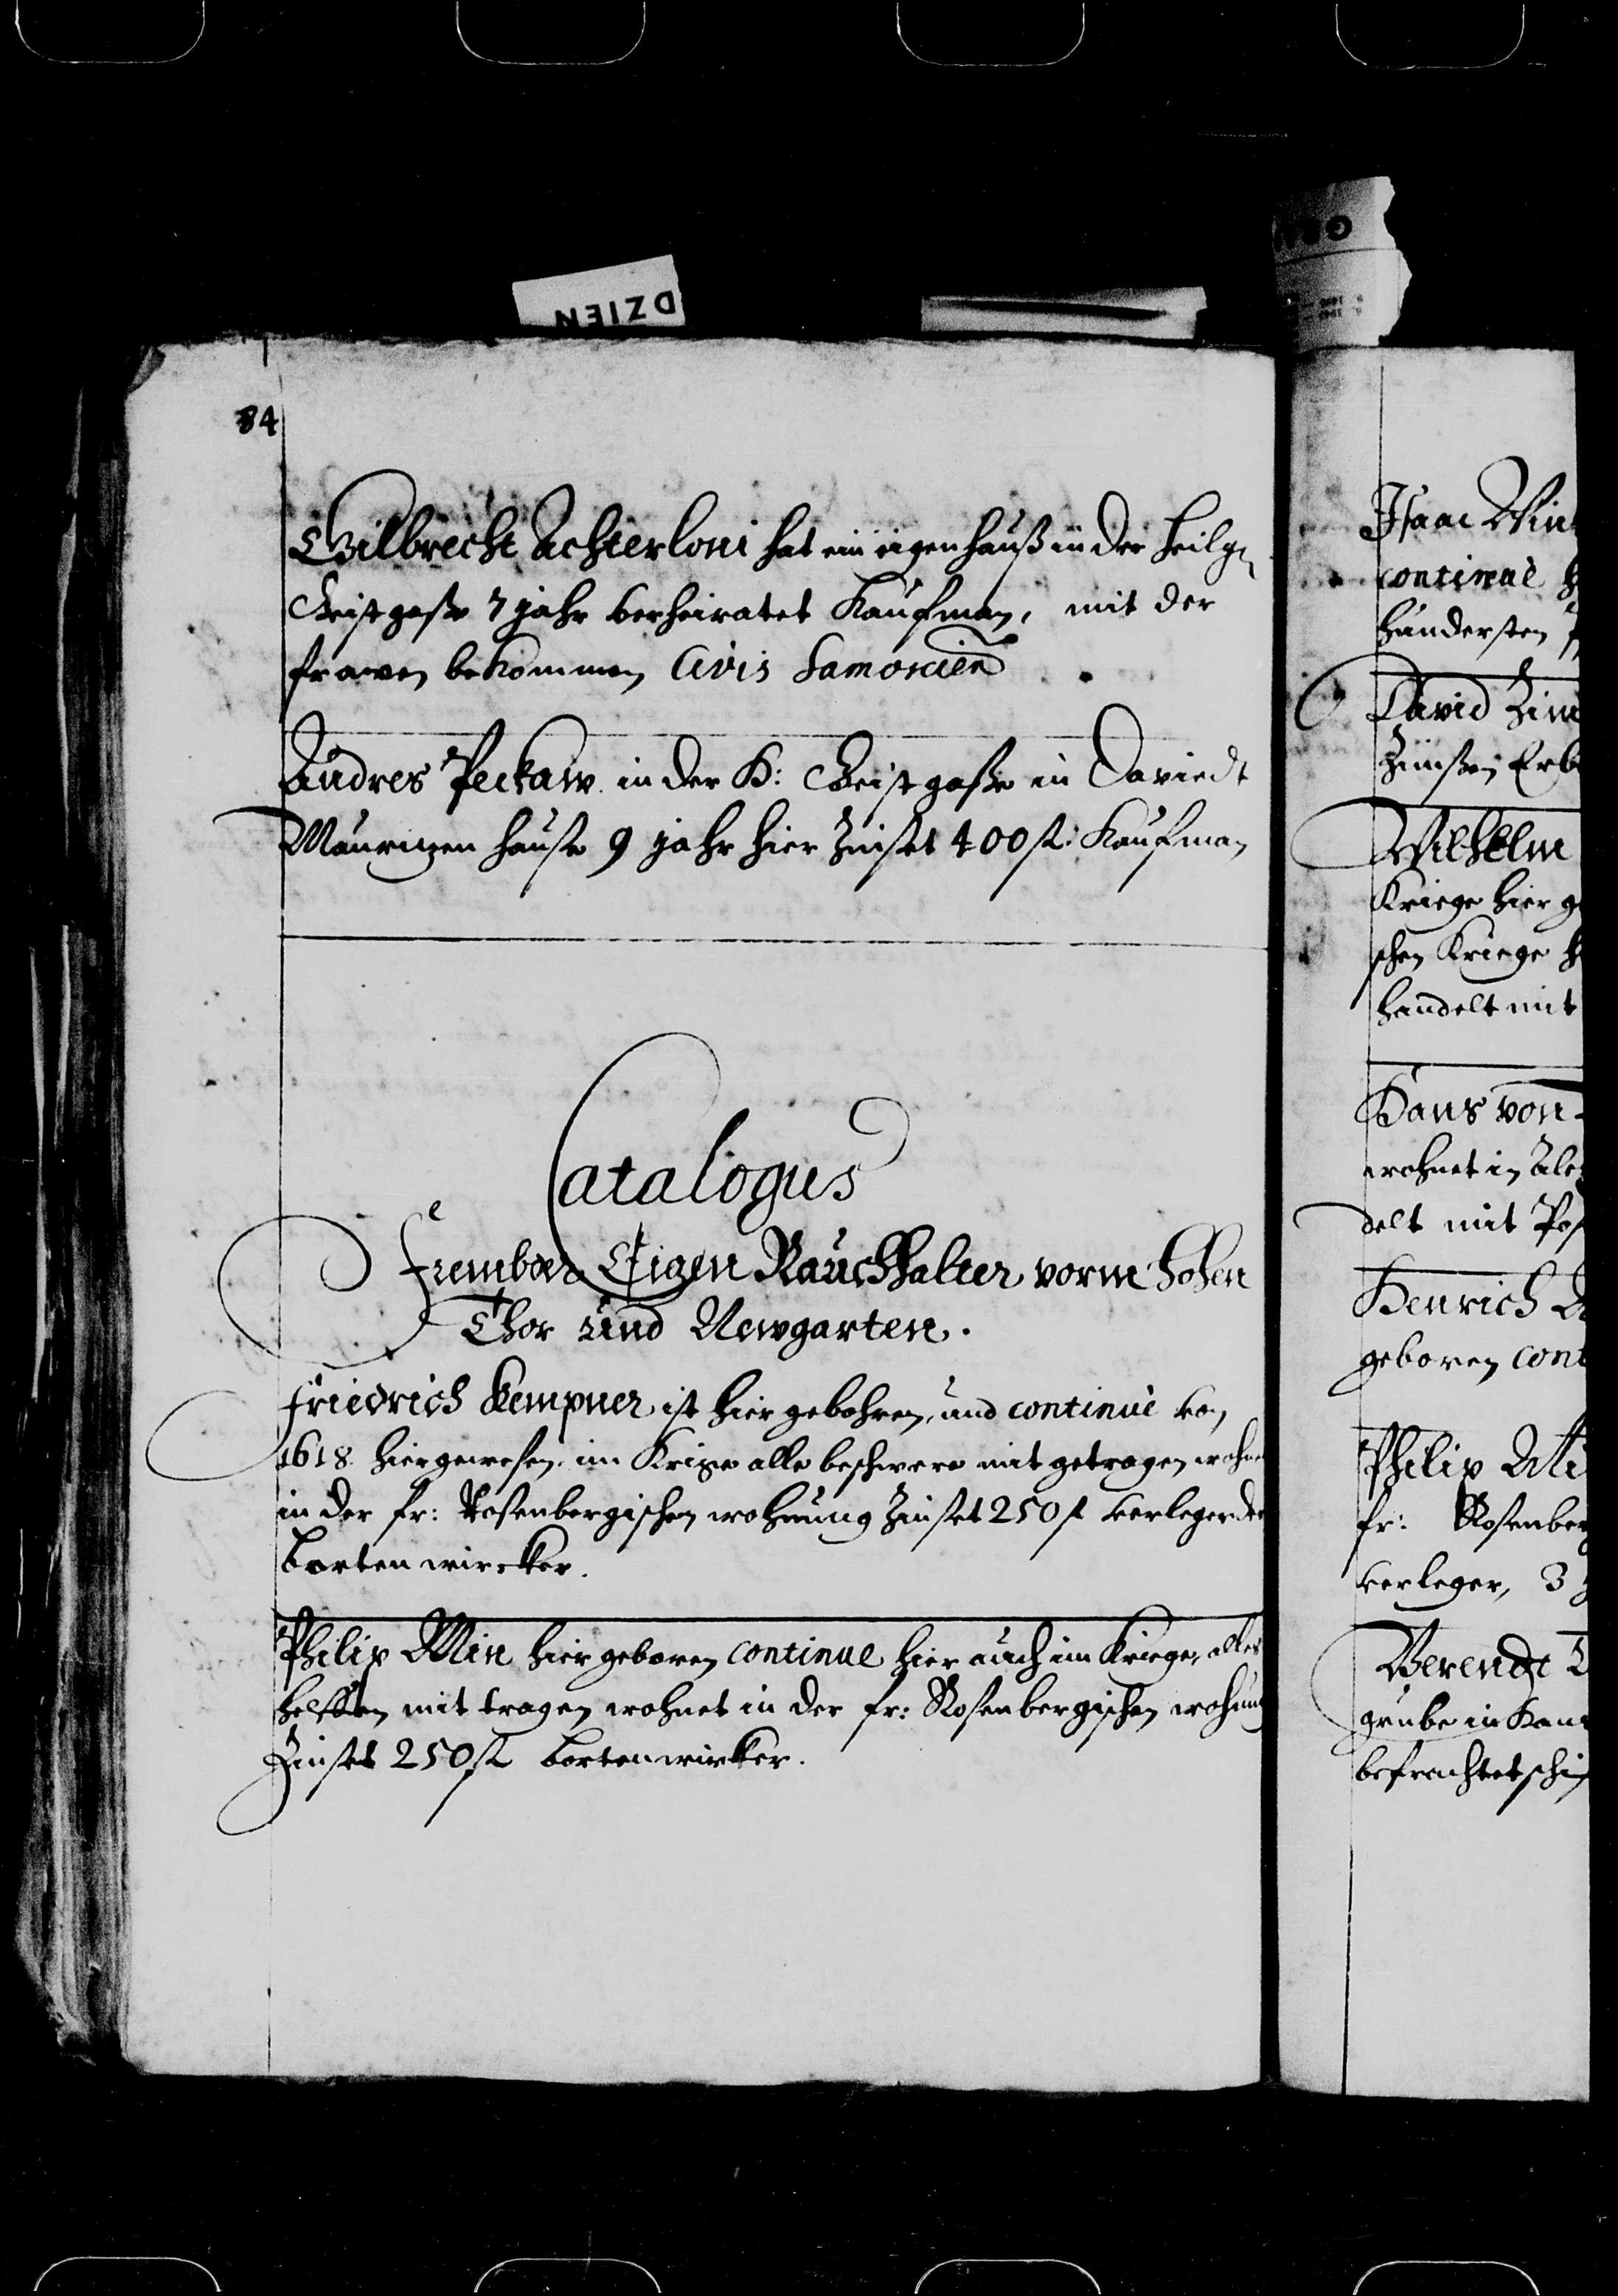 DZIEN
84
Gilbrecht Achterloni hat ein eigen hauß in der heilgen
Geistgaße 7 jahr verheiratet Kaufman, mit der
frawen bekommen Civis
Andres Peckaw in der H: Geistgaße in Daviedt
hause 9 jahr hier Zinset 400 fl: Kaufman
Catalogus
Frembder Eigen Rauchhalter vorm hohen
Thor und Newgarten.
Friedrich Kempner ist hier gebohren, und continuè von
1618 hier gewesen, im Krige alle beschwere mit getragen wohnet
in der fr: Rosenbergischen wohnung Zinset 250 fl verleger der
bortenwircker.
Philip Min hier geboren continue hier auch im Kriege, alles
helffen mit tragen wohnet in der fr: Rosenbergischen wohnung
Zinset 250 fl bortenwirker.
Isaac
continuè
hundersten
David
Wilhelm
Kriege hier
schen Kriege
handelt mit
Hans von
wohnet in
delt mit
Henrich
geboren
Philip
fr: Rosenber
verleger, 3
Berendt
grube in
befrachtet